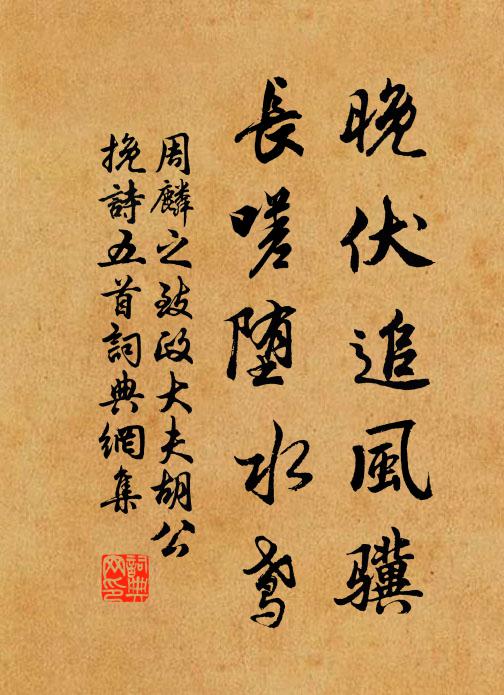 晚伏追風驥
長嗟堕水鸢
周麟之致政大夫胡公
挽詩五首詞典網集
詞典
网印